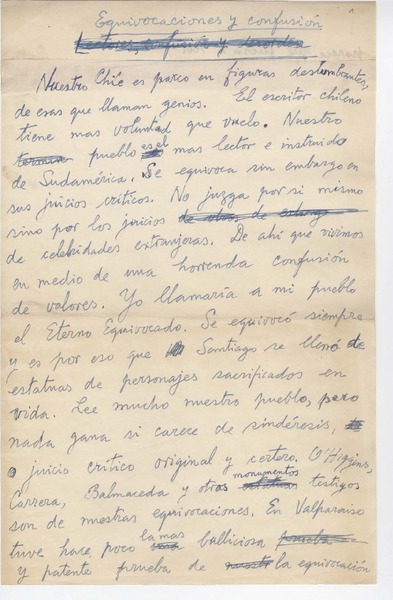 Equivocaciones y confusión
Lectores, confusión y desorden
Nuestro Chile es parco en figuras deslumbrantes,
de esas que llaman genios. El escritor chileno
tiene mas voluntad que vuelo. Nuestro
pueblo es el mas lector e instruido
de Sudamérica. Se equivoca sin embargo en
sus juicios críticos. No juzga por si mismo
sino por los juicios
de celebridades extranjeras. De ahí que vivimos
en medio de una horrenda confusión
de valores. Yo llamaría a mi pueblo
el Eterno Equivocado. Se equivocó siempre
y es por eso que Santiago se llenó de
estatuas de personajes sacrificados en
vida. Lee mucho nuestro pueblo, pero
nada gana si carece de sindéresis,
o juicio crítico original y certero. O'Higgins,
Carrera, Balmaceda y otros monumentos testigos
son de nuestras equivocaciones. En Valparaíso
tuve hace poco la mas bulliciosa prueba
y patente prueba de la equivocación